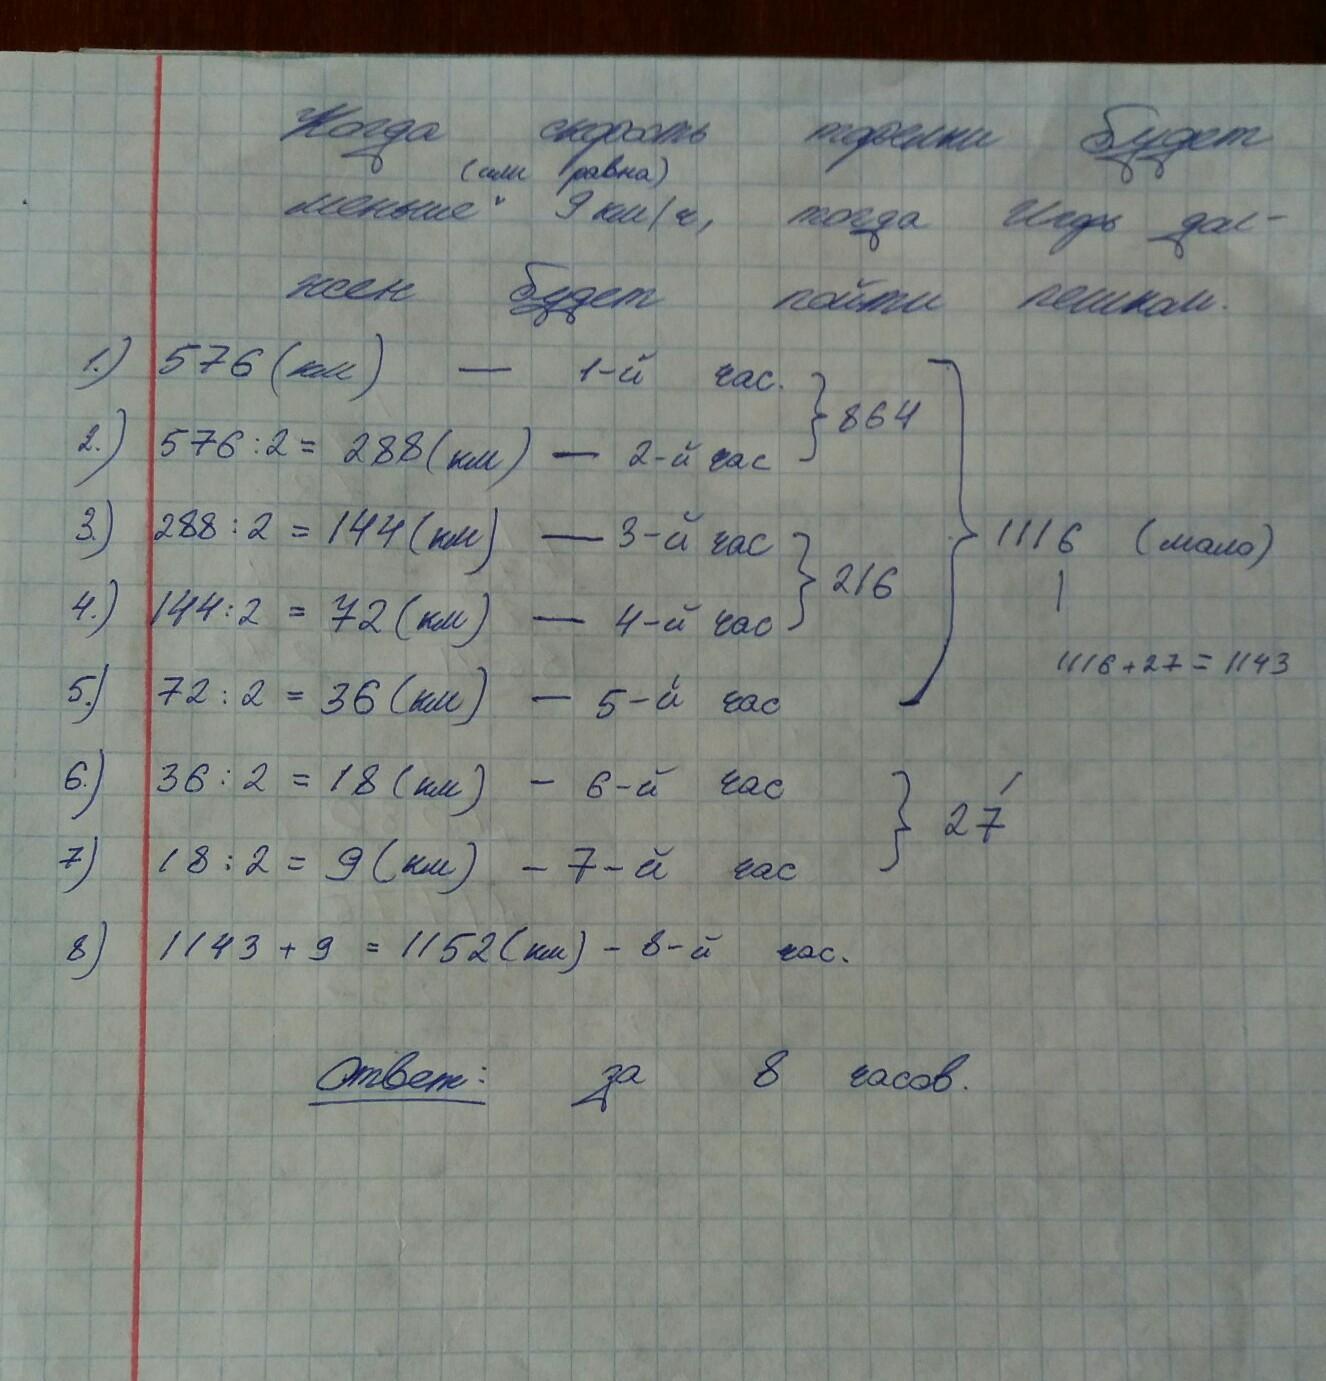 Когда скорость тарелки будет
(или равна)
меньше 9 км/ч, тогда Игорь дол-
жен будет пойти пешком.
1.) 576 (км) — 1-й час. } 864
2.) 576 : 2 = 288 (км) — 2-й час
3.) 288 : 2 = 144 (км) — 3-й час } 216
1116 (мало)
4.) 144 : 2 = 72 (км) — 4-й час
1116 + 27 = 1143
5.) 72 : 2 = 36 (км) — 5-й час
6.) 36 : 2 = 18 (км) - 6-й час } 27
7) 18 : 2 = 9 (км) - 7-й час
8) 1143 + 9 = 1152 (км) - 8-й час.
Ответ: за 8 часов.